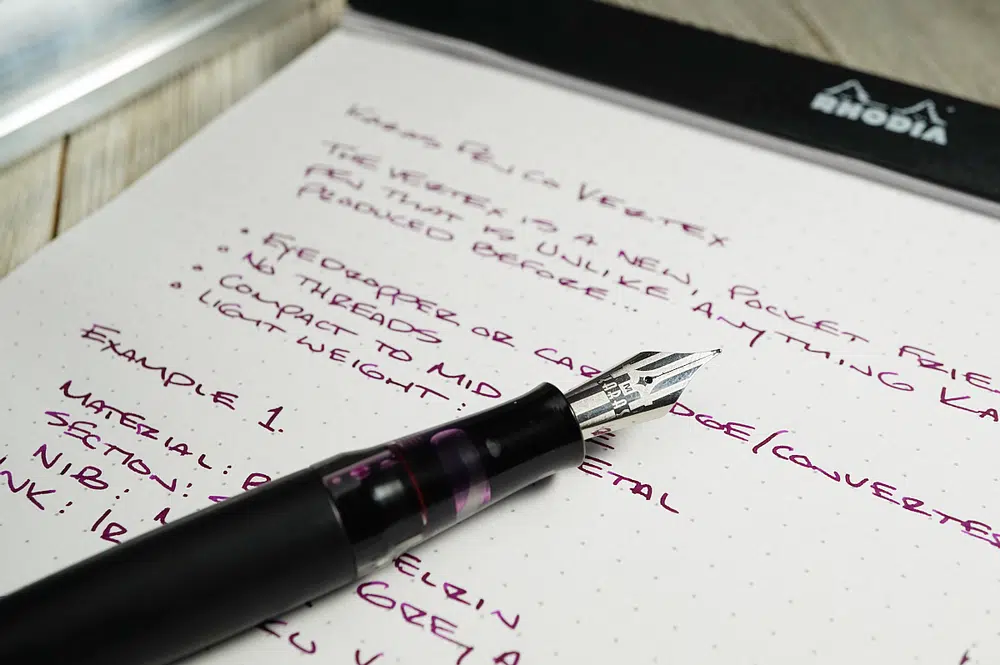 RHODIA
KARAS PEN CO VERTEX
THE VERTEX IS A NEW, POCKET FRIE
PEN THAT IS UNLIKE ANYTHING KA
PRODUCED BEFORE...
• EYEDROPPER OR CAR DGE/CONVERTE
• NO THREADS
• COMPACT TO MID E
• LIGHT WEIGHT: ETAL
EXAMPLE 1.
MATERIAL: ELRIN
SECTION: GREY A
NIB:
NK: IR KU
KARAS